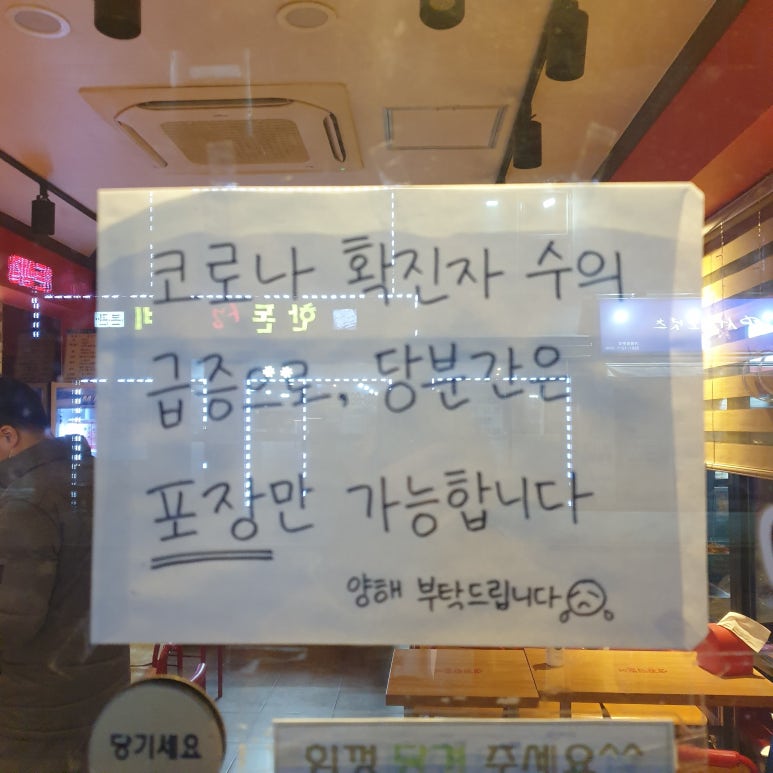 코로나 확진자 수의
급증으로, 당분간은
포장만 가능합니다
양해 부탁드립니다
당기세요
힘껏 당겨 주세요^^